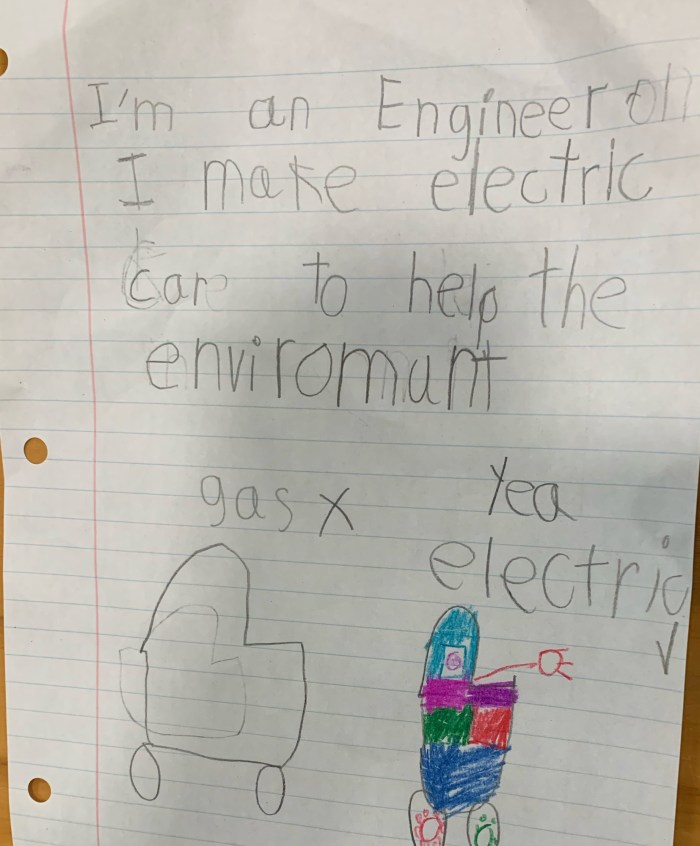 I'm an Engineer oh
I make electric
car to help the
enviromant
gas x Yea
electric
✓